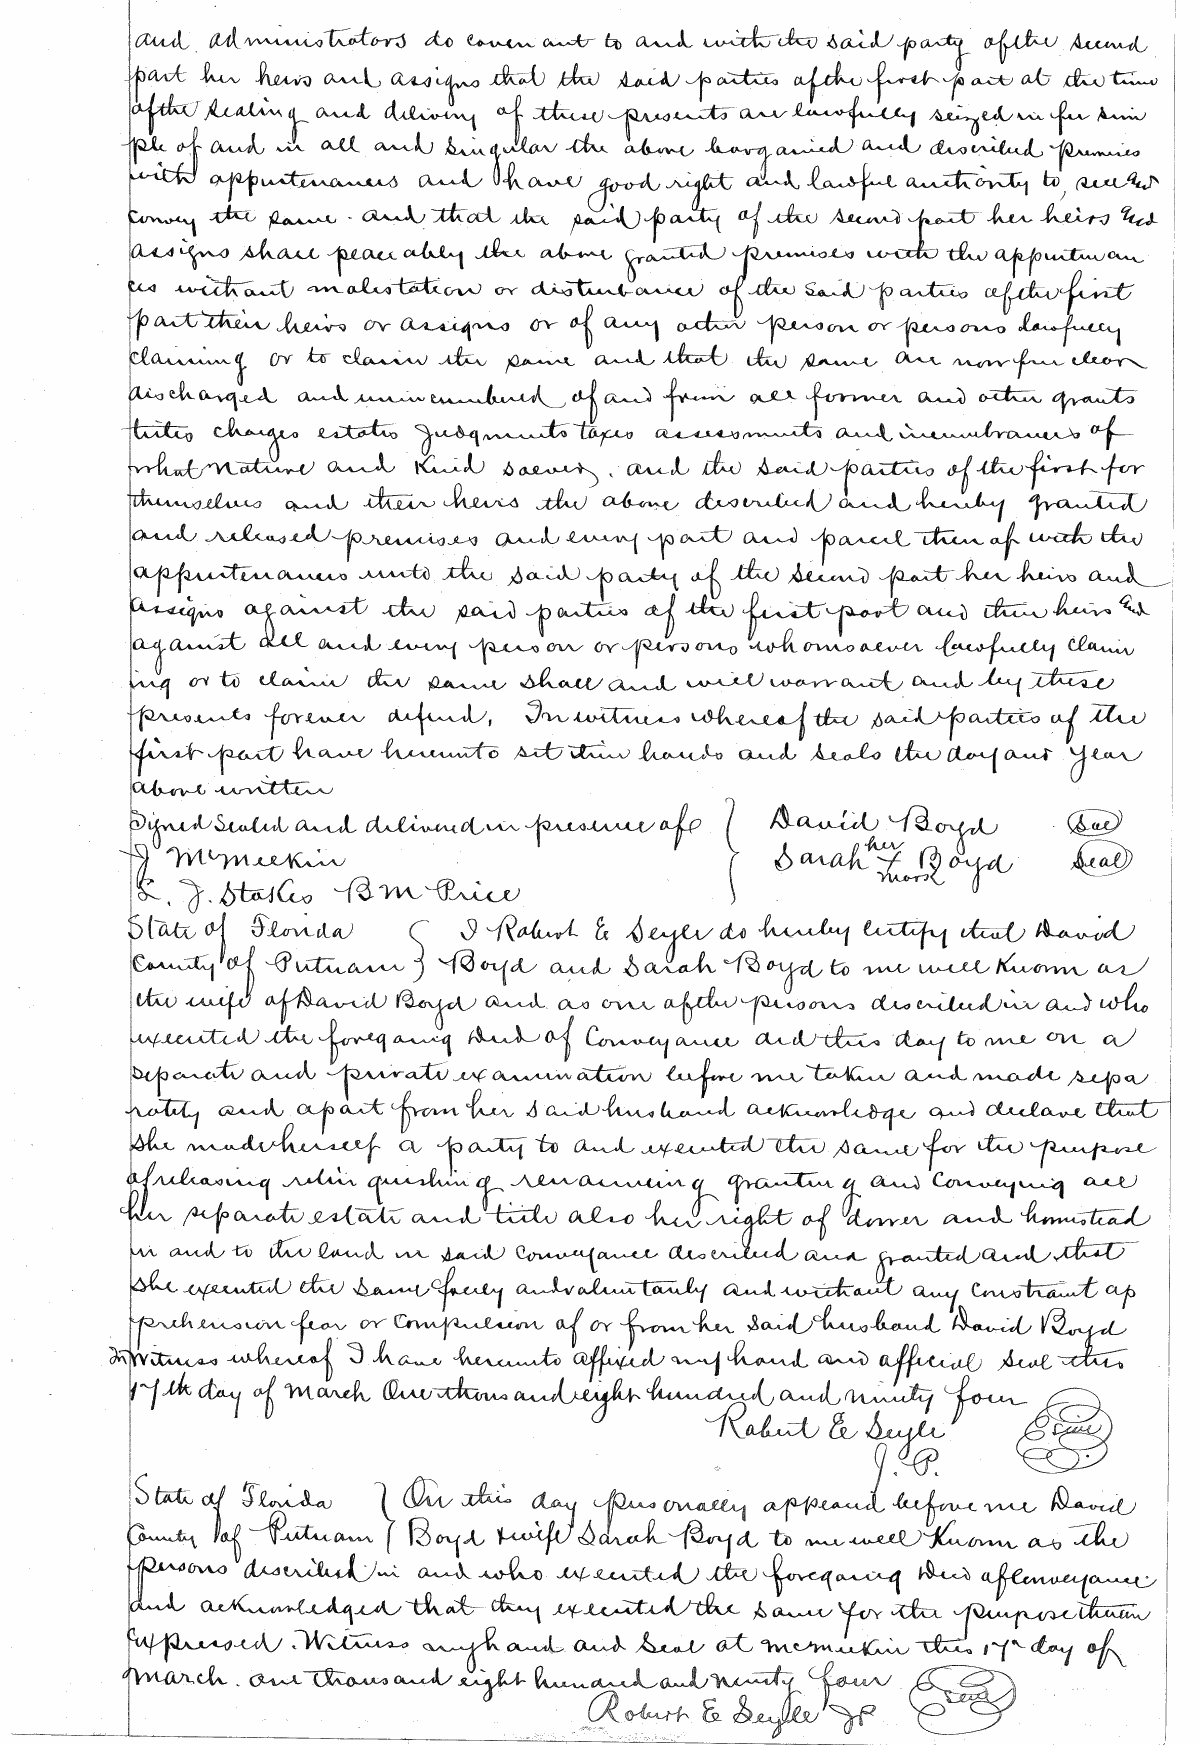 and administrators do covenant to and with the said party of the second
part her heirs and assigns that the said parties of the first part at the time
of the sealing and delivery of these presents are lawfully seized in fee sim
ple of and in all and singular the above bargained and described premises
with appurtenances and have good right and lawful authority to sell and
convey the same. and that the said party of the second part her heirs and
assigns shall peaceably the above granted premises with the appurtenan
ces without molestation or disturbance of the said parties of the first
part their heirs or assigns or of any other person or persons lawfully
claiming or to claim the same and that the same are now free clear
discharged and unincumbered of and from all former and other grants
titles charges estates judgments taxes assessments and incumbrances of
what nature and kind soever. and the said parties of the first for
themselves and their heirs the above described and hereby granted
and released premises and every part and parcel thereof with the
appurtenances unto the said party of the second part her heirs and
assigns against the said parties of the first part and their heirs and
against all and every person or persons whomsoever lawfully claim
ing or to claim the same shall and will warrant and by these
presents forever defend. In witness whereof the said parties of the
first part have hereunto set their hands and seals the day and year
above written
Signed Sealed and delivered in presence of } David Boyd Seal
J McMeekin { Sarah her X mark Boyd Seal
J. Stokes B M Price
State of Florida { I Robert E Seyle do hereby certify that David
County of Putnam } Boyd and Sarah Boyd to me well known as
the wife of David Boyd and as one of the persons described in and who
executed the foregoing deed of conveyance did this day to me on a
separate and private examination before me taken and made sepa
rately and apart from her said husband acknowledge and declare that
she made herself a party to and executed the same for the purpose
of releasing relinquishing renouncing granting and conveying all
her separate estate and title also her right of dower and homestead
in and to the land in said conveyance described and granted and that
she executed the same freely and voluntarily and without any constraint ap
prehension fear or compulsion of or from her said husband David Boyd
In Witness whereof I have hereunto affixed my hand and official seal this
17th day of March One thousand eight hundred and ninety four
Robert E Seyle Seal
J. P.
State of Florida } On this day personally appeared before me David
County of Putnam { Boyd & wife Sarah Boyd to me well known as the
persons described in and who executed the foregoing deed of conveyance
and acknowledged that they executed the same for the purpose therein
expressed. Witness my hand and seal at McMeekin this 17th day of
March. one thousand eight hundred and ninety four Seal
Robert E Seyle JP